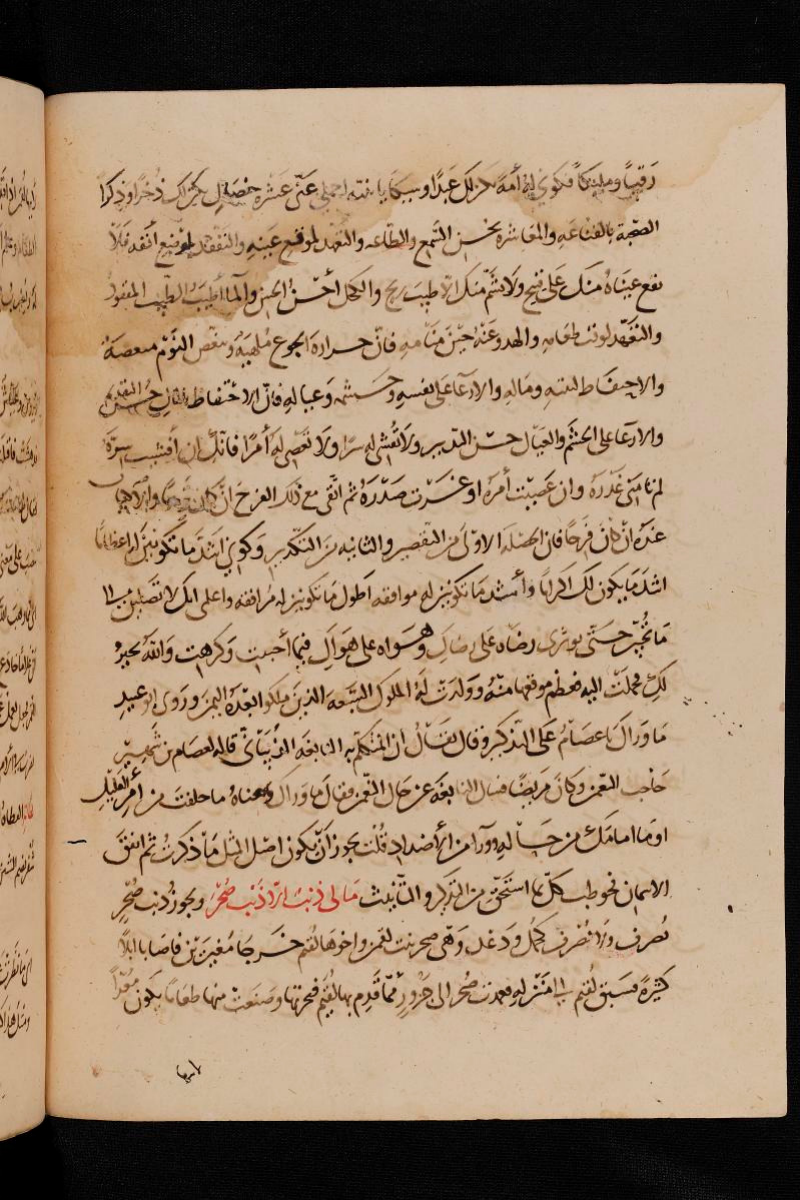 رَقيبًا ومليكًا فكوني له أمةً يكن لك عبدًا وشيكًا يا بنية احملي عني عشر خصال يكن لك ذُخرًا وذِكرًا
الصحبة بالقناعه والمعاشره بحسن السمع والطاعه والتعهد لموقع عينه والتفقد لموضع أنفه فلا
تقع عيناه منك على قبيح ولا يشم منك الا طيب ريح والكحل أحسن الحسن والما أطيب الطيب المفقود
والتعهد لوقت طعامه والهدو عنه حين منامه فان حرارة الجوع ملهبة وتنغيص النوم مبغضة
والاحتفاظ ببيته وماله والارعا على نفسه وحشمه وعياله فان الاحتفاظ بالمال حسن التقدير
والارعا على الحشم والعيال حسن التدبير ولا تفشي له سرا ولا تعصي له أمرا فانك ان افشيت سره
لم تامني غدره وان عصيت أمره اوغرت صدره ثم اتقي مع ذلك الفرح ان كان ترحا والاكتياب
عنده ان كان فرحا فان الخصلة الاولى من التقصير والثانيه من التكدير وكوني اشد ما تكونين له اعظاما
اشد ما يكون لك اكراما وأشد ما تكونين له موافقه اطول ما تكونين له مرافقه واعلمي انك لا تصلين الى
ما تحبين حتى توثري رضاه على رضاك وهواه على هواك فيما أحببت وكرهت والله يخير
لك فحملت اليه فعظم موقعها منه وولدت له الملوك السبعة الذين ملكوا بعده اليمن وروى ابو عبيد
ما وراك يا عصام على التذكير وقال يقال ان المتكلم به النابغه الذبياني قاله لعصام بن شهبر
حاجب النعمن وكان مريضا فسال النابغة عن حال النعمن فقال ما وراك ومعناه ما خلفت من أمر العليل
او ما امامك من حاله وورا من الأضداد قلت يجوز أن يكون اصل المثل ما ذكرت ثم اتفق
الاسمان فخوطب كل بما استحق من التذكير والتانيث مالي ذنب الا ذنب صُحْر ويجوز ذنب صحر
تصرف ولا تصرف كجمل ودعد وهي صحر بنت لقمن واخوها لقيم خرجا مغيرين فاصابا ابلا
كثيرة فسبق لقيم الى منزله فعمدت صحر الى جزور مما قدم بها لقيم فنحرتها وصنعت منها طعاما يكون معدا